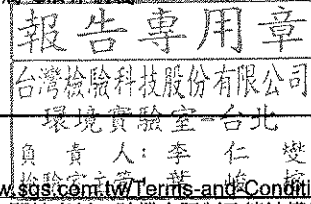 報告專用章
台灣檢驗科技股份有限公司
環境實驗室-台北
負責人：李仁燮
檢驗室主管：葉峻
w.sgs.com.tw/Terms-and-Conditi